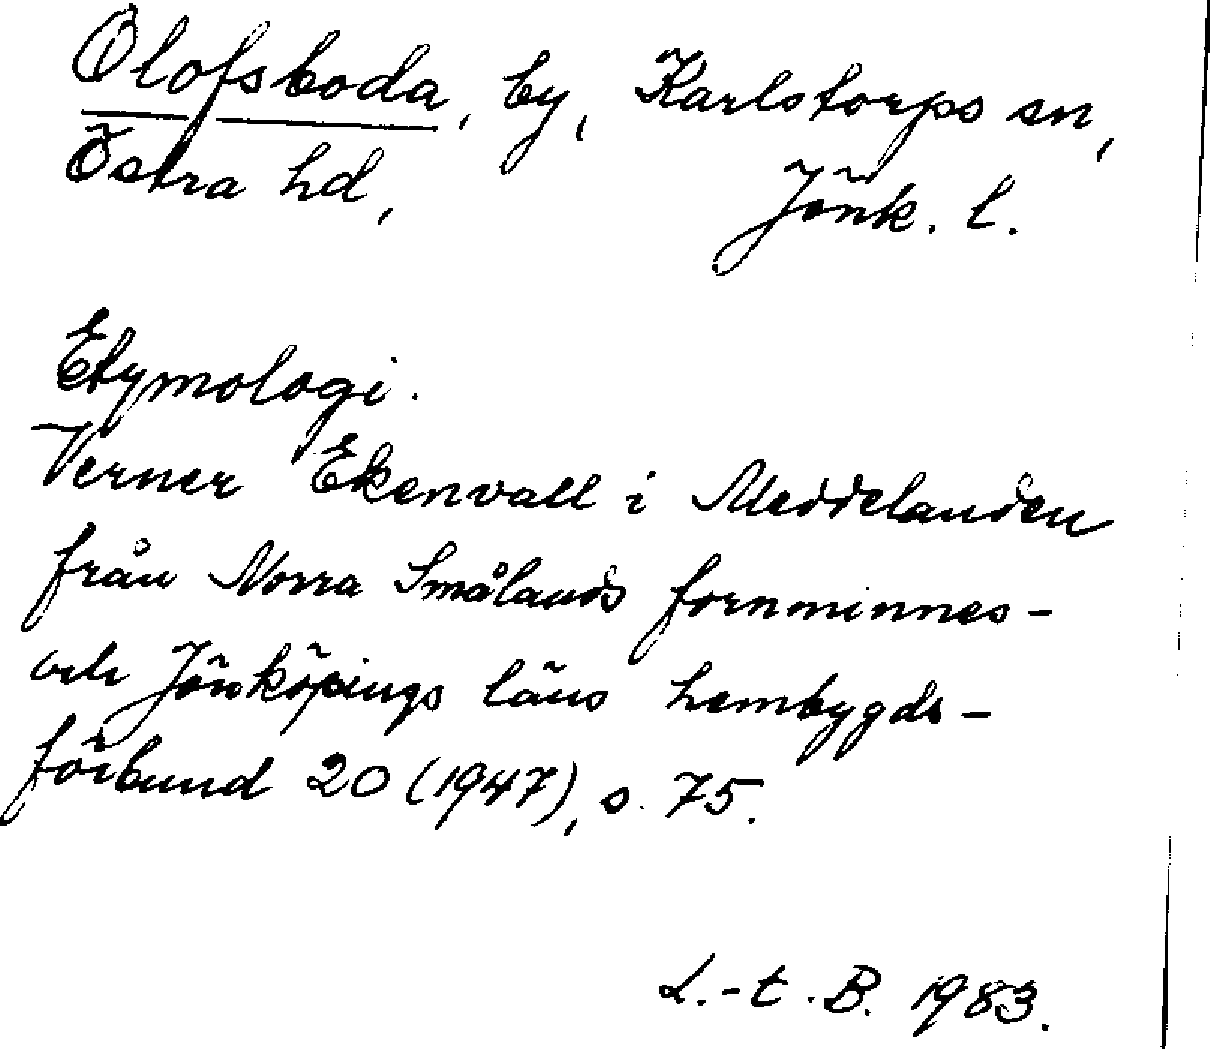 Olofsboda, by, Karlstorps sn,
Östra hd, Jönk. l.
Etymologi.
Verner Ekenvall i Meddelanden
från Norra Smålands fornminnes-
och Jönköpings läns hembygds-
förbund 20 (1947), s. 75.
L.-t. B. 1983.